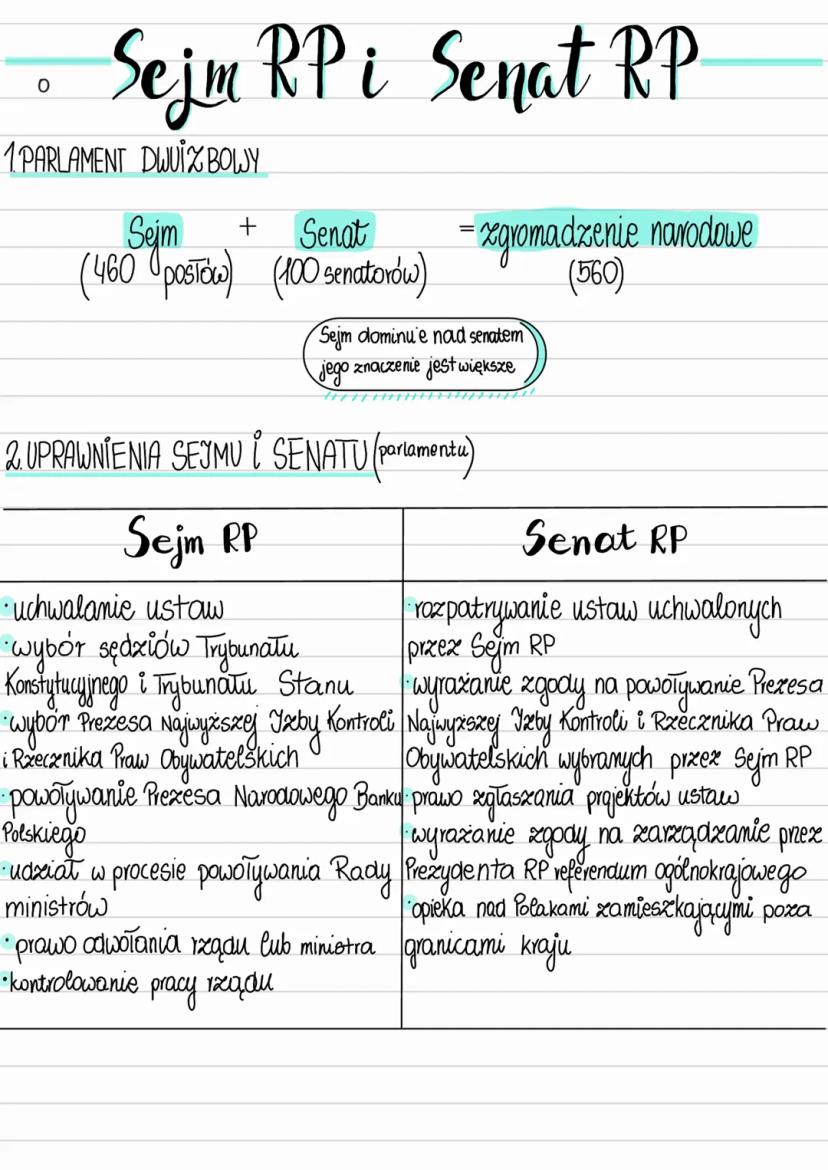 Sejm RP i Senat RP
1.PARLAMENT DWUIZBOWY
Sejm + Senat = zgromadzenie narodowe
(460 posłów) (100 senatorów) (560)
Sejm dominu'e nad senatem
jego znaczenie jest większe
2.UPRAWNIENIA SEJMU i SENATU (parlamentu)
Sejm RP
•uchwalanie ustaw
•wybór sędziów Trybunału
Konstytucyjnego i Trybunału Stanu
•wybór Prezesa Najwyższej Izby Kontroli
i Rzecznika Praw Obywatelskich
•powoływanie Prezesa Narodowego Banku
Polskiego
•udział w procesie powoływania Rady
ministrów
•prawo odwołania rządu lub ministra
•kontrolowanie pracy rządu
Senat RP
•rozpatrywanie ustaw uchwalonych
przez Sejm RP
•wyrażanie zgody na powoływanie Prezesa
Najwyższej Izby Kontroli i Rzecznika Praw
Obywatelskich wybranych przez Sejm RP
•prawo zgłaszania projektów ustaw
•wyrażanie zgody na zarządzanie przez
Prezydenta RP referendum ogólnokrajowego
•opieka nad Polakami zamieszkającymi poza
granicami kraju